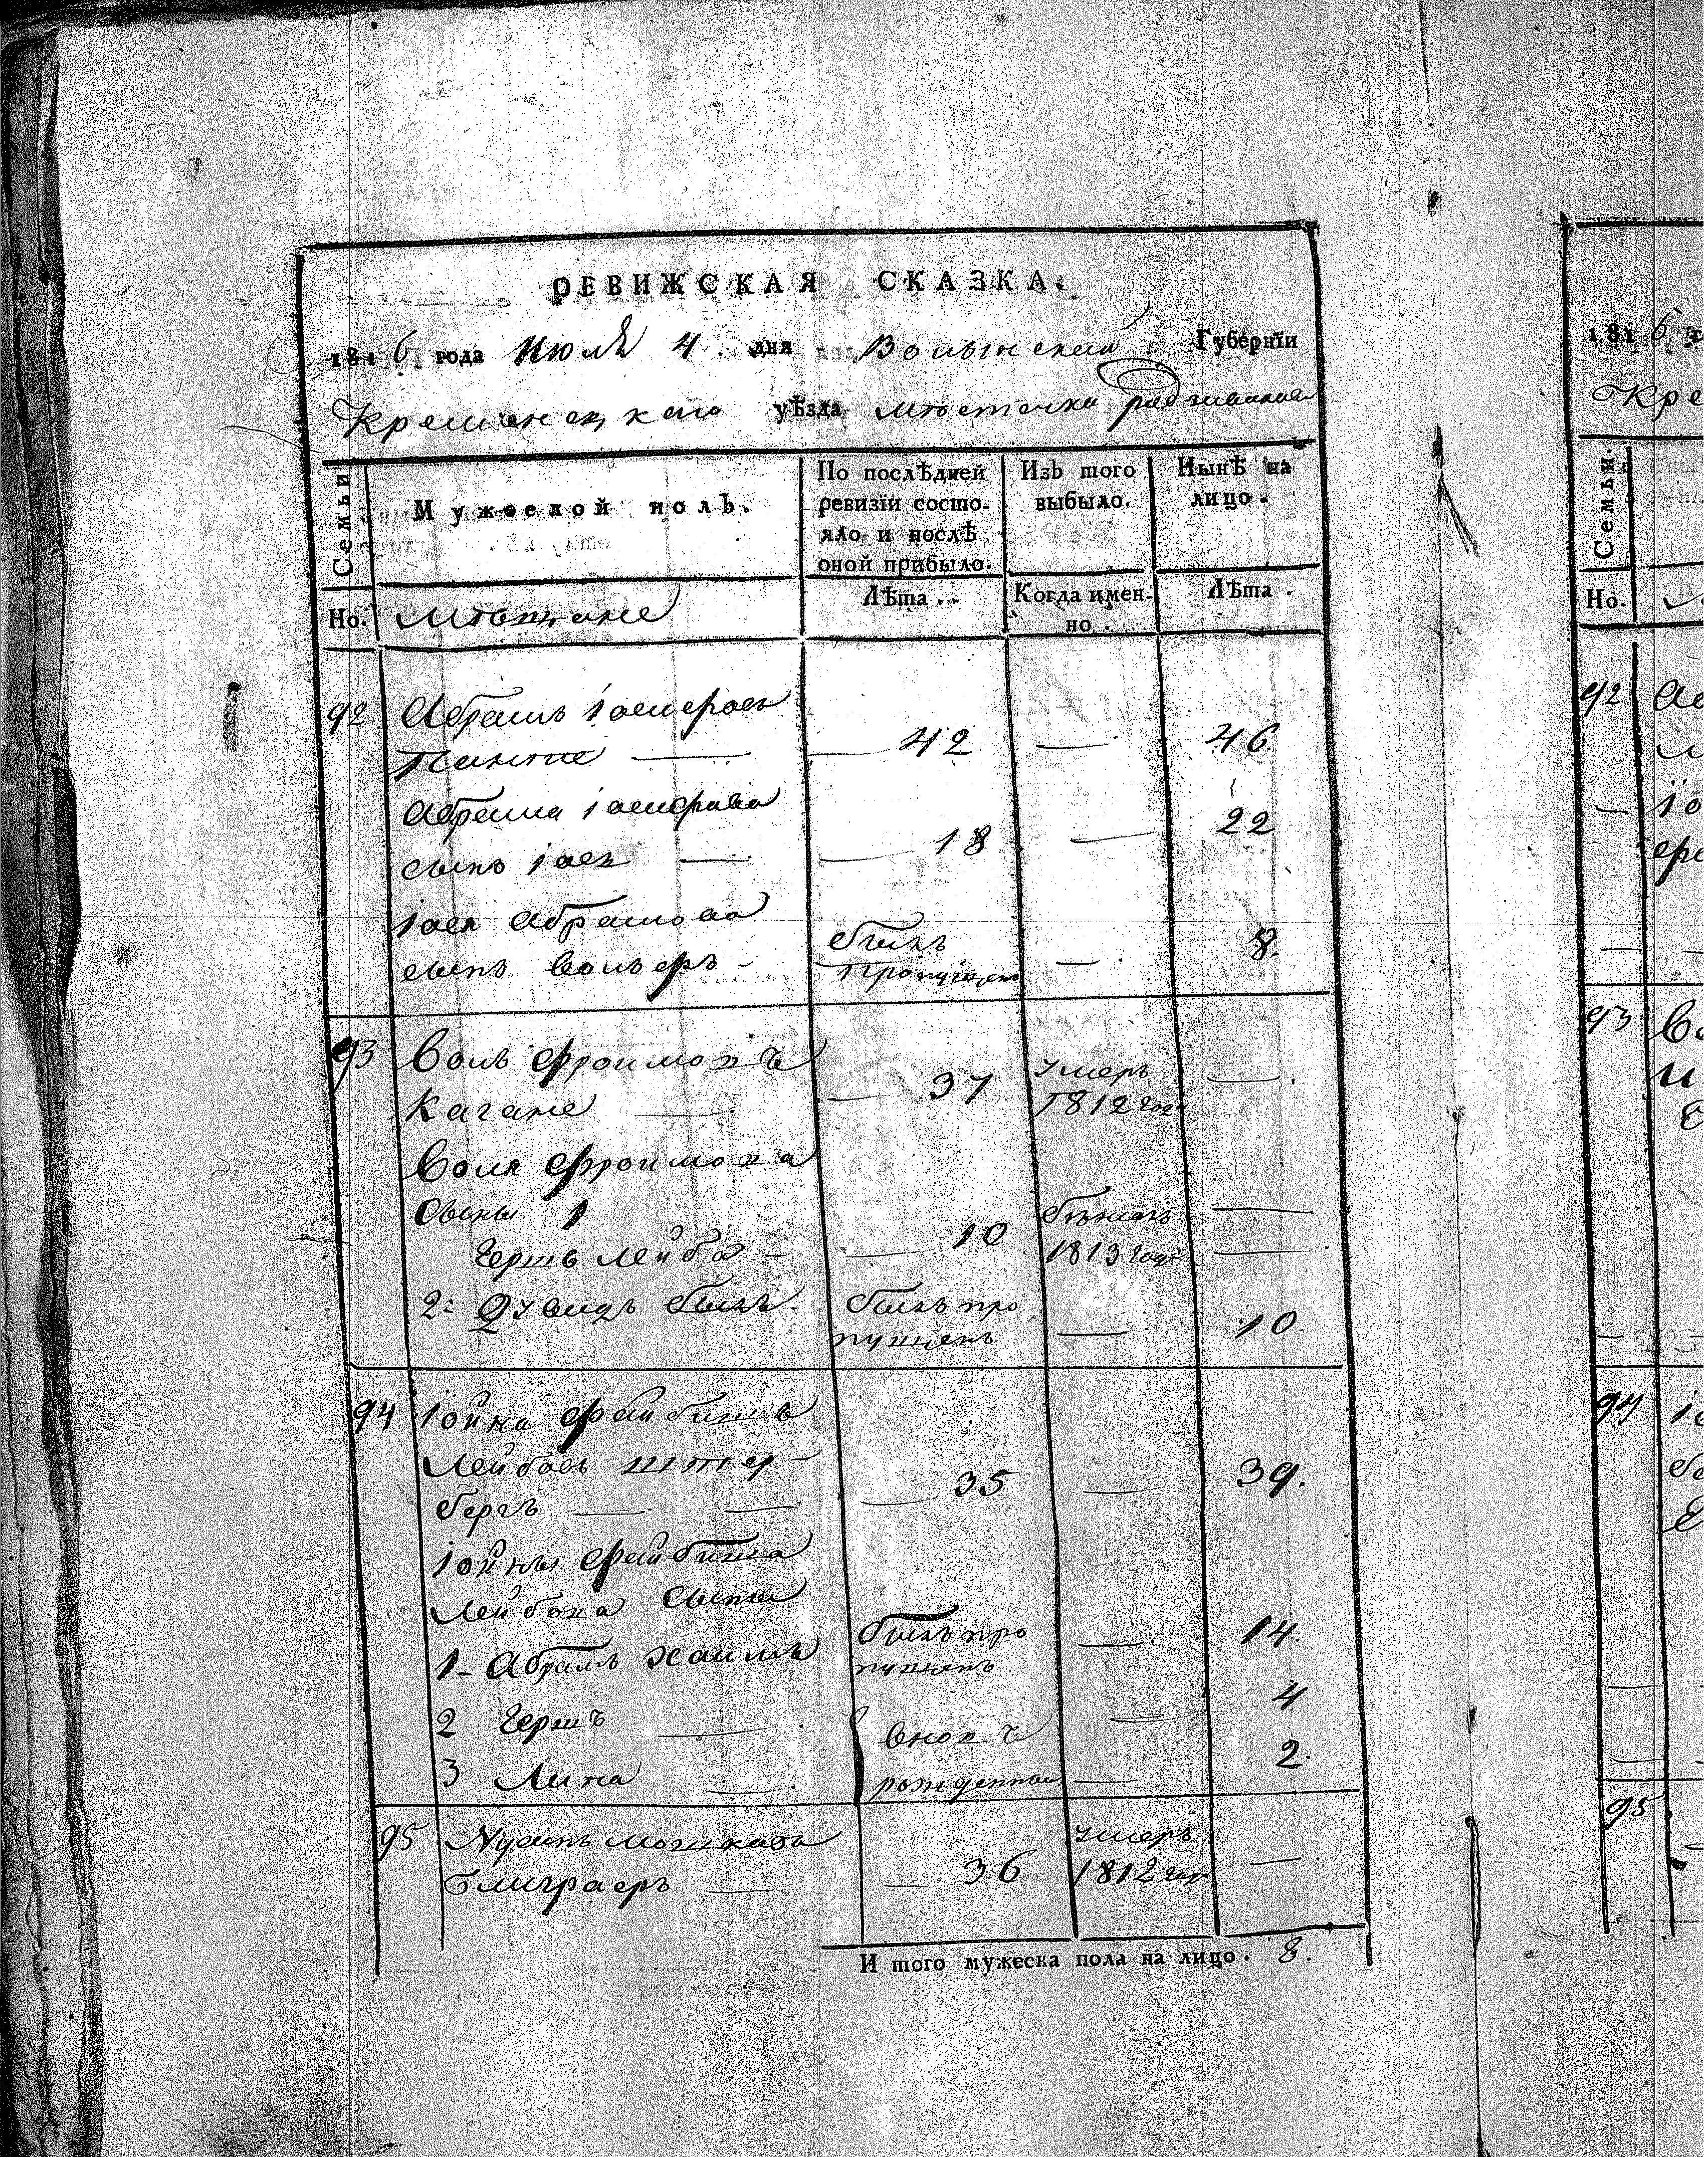 РЕВИЖСКАЯ СКАЗКА.
1816 года Июля 4 дня Волынской Губернїи
Кременецкаго уѣзда мѣстечка Радзивилова
Семьи
Мужескои полъ.
По послѣдней ревизїи состо-
яло и послѣ
оной прибыло.
Изъ того
выбыло.
Нынѣ на
лицо.
Но.
Мѣщане
Лѣта..
Когда имен-
но.
Лѣта.
92 Абрамъ Іосифовъ
— 42 — 46
Абрама Іосифова
сынъ Іось — — 18 — 22
Іося Абрамова
сынъ Вольфъ — былъ пропущенъ — 8.
93 Воль Фроимовъ
Кагане — — 37 умеръ 1812 года —.
Воля Фроимова
Сыны 1
Гершъ Лейба — — 10 бѣжалъ 1813 года —
2: былъ про
пущенъ — 10.
94 Іойна Файбишъ
Лейбовъ Штер-
бергъ — — 35 — 39.
Іойны Файбиша
Лейбова Сыны
1- Абрамъ Хаимъ былъ про
пущенъ — 14.
2 Гершъ — вновь — 4
3 — рожденный — 2.
95 Нусинъ Мошковъ
— 36 умеръ 1812 года —.
И того мужеска пола на лицо. 8.
1816
Кре
Семьи.
Но.
92
93
94
95